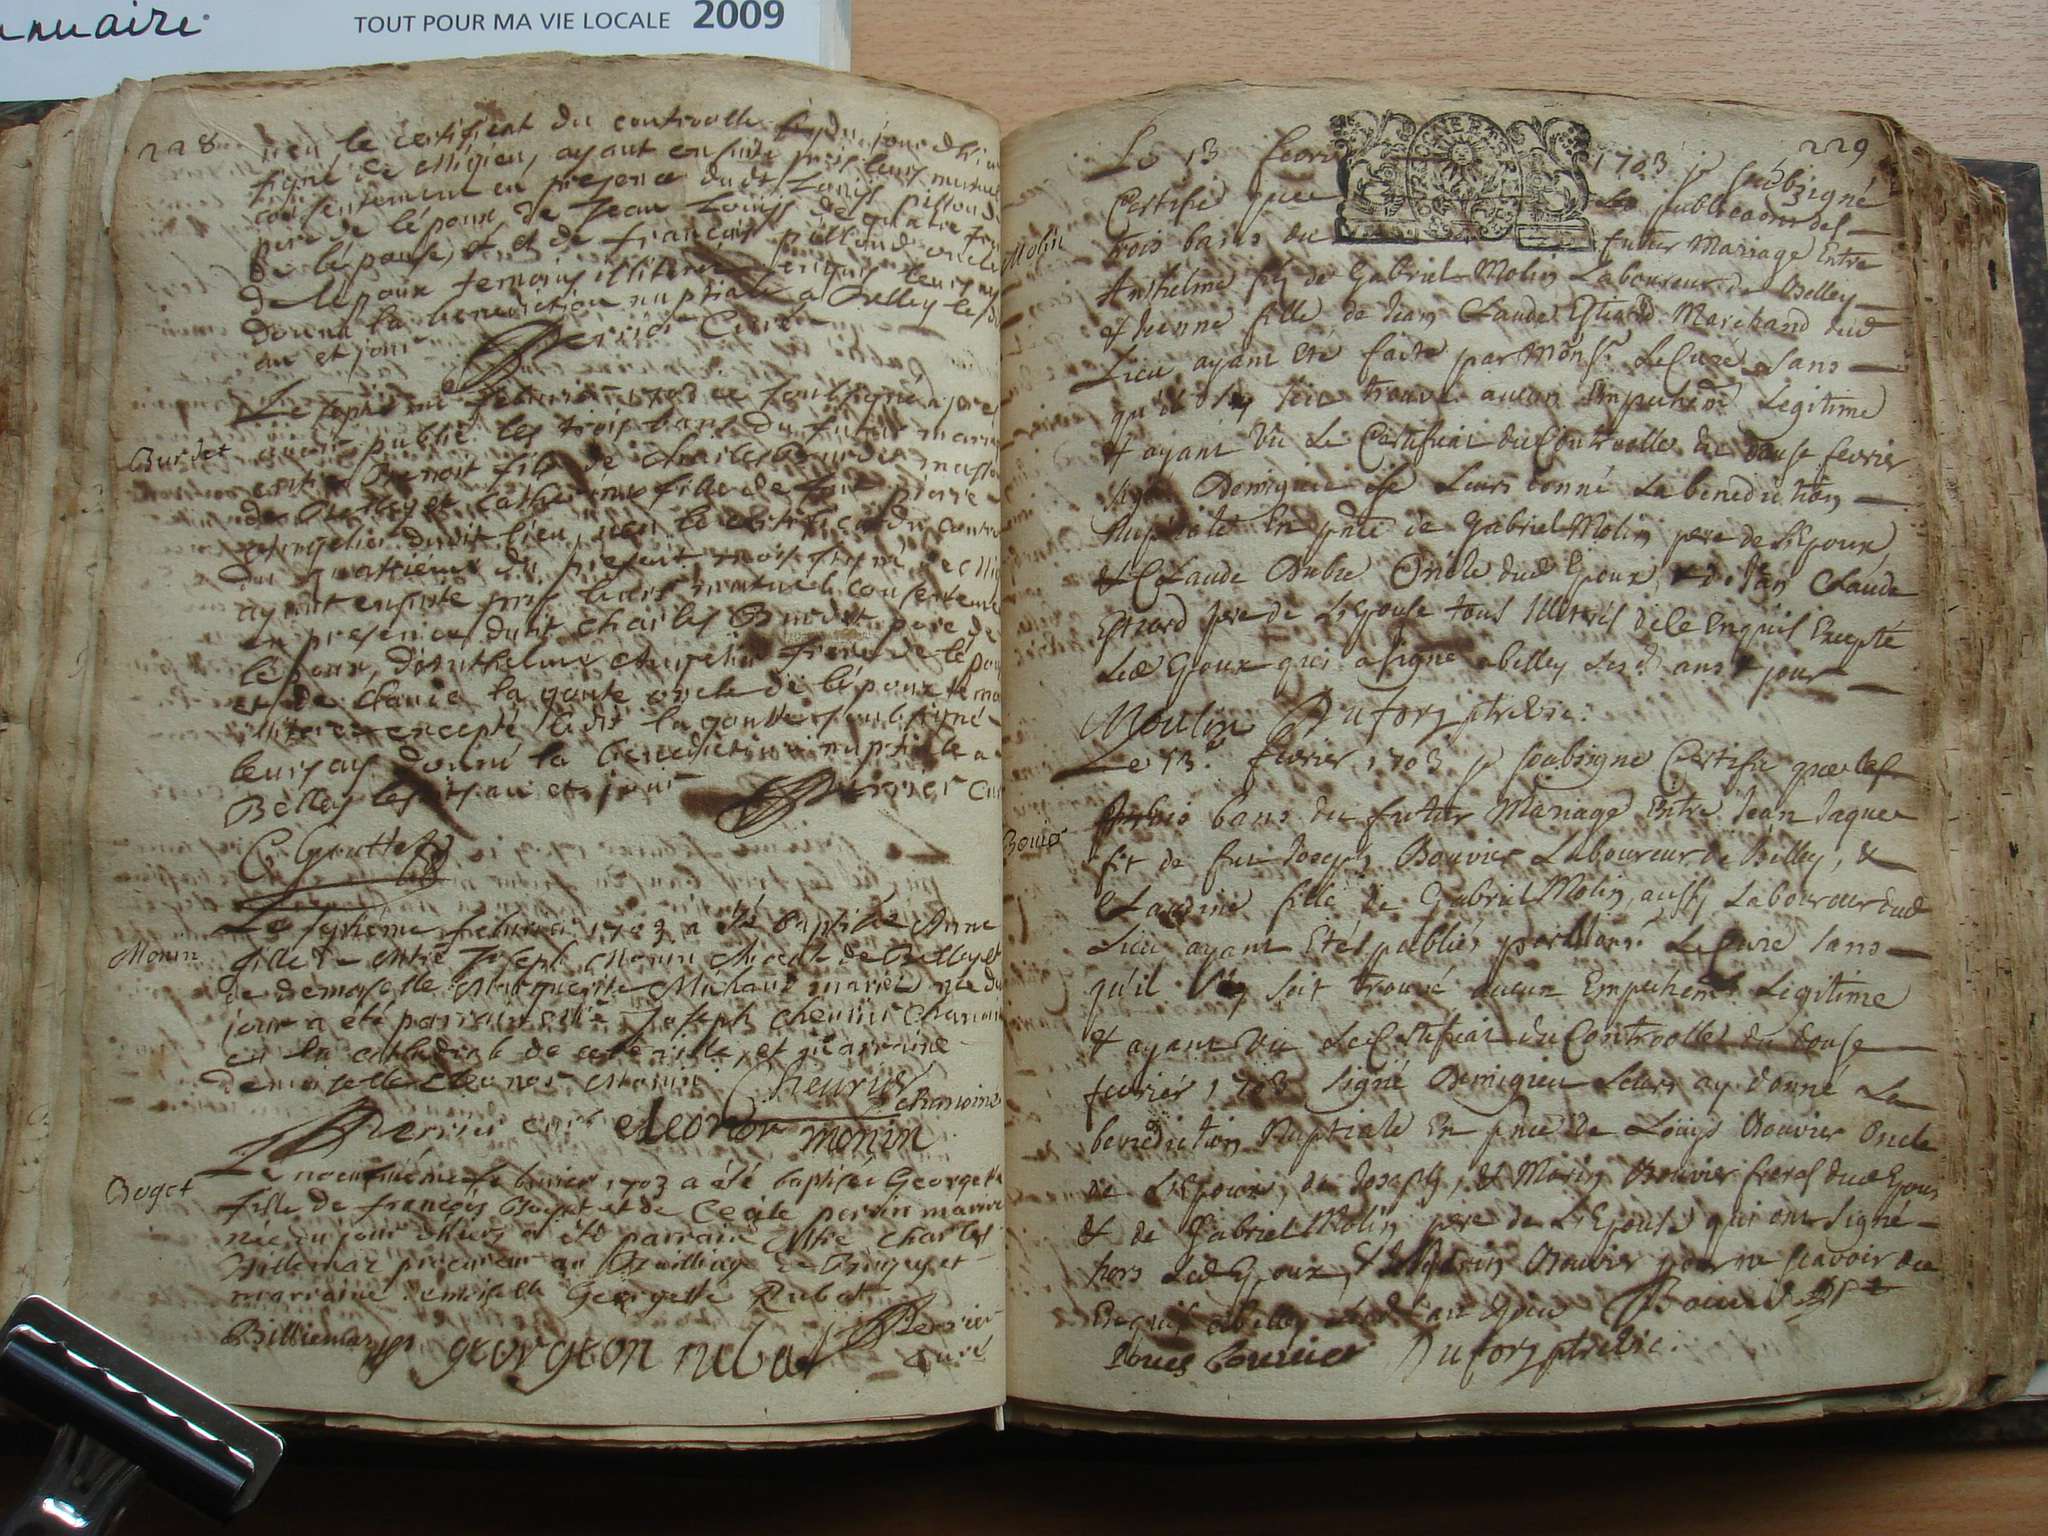 annuaire
TOUT POUR MA VIE LOCALE 2009
228
veu le certificat du controolle
signé de Migieu, ayant ensuite pris leurs mutuel
consentement en presence dudt Louis
pere de lépoux de Jean Louis de quatre
de lépouse, et de françois
de lépoux temoins illiterés enquis leurs ay
donné la benediction nuptiale a Belley
an et jour Perrier Curé
Le septieme febvrier 1703 ie soubsigné apres
Burdet
avoir publié les trois bans du futur mariage
entre Benoit fils de Charles Bourdet masson
de Belley et Catherine fille de feu pierre
dudit lieu, veu le certificat du contro
du quattrieme du present mois signé de Mig
ayant ensuite pris leurs mutuels consentement
en presence dudit Charles Burdet pere de
lépoux, d'Anthelme frere de lépouse
et de Claude la goute oncle de lépoux
illiterés excepté ledit la goutte soubsigné
leurs ay donné la benediction nuptialle a
Belley lesdits an et jour Perrier Curé
C Goutte
Le septiéme febvrier 1703 a été baptisée Anne
Monin
fille de Mtre Joseph Monin Avocat de Belley et
de demoiselle Marguerite Michaud mariés née du
jour a été parrain Mre Joseph Cheurier Chanoine
en la cathedrale de cette ville, et marraine
demoiselle Eleonor Monin. Cheurier chanoine
Perrier curé eleonor monin
Le neufviéme febvrier 1703 a été baptisée Georgette
Boget
fille de françois Boget et de Cecile perrin mariés
née du jour d'hier a été parrain Mtre Charles
Billiemaz procureur au Bailliage de Bugey et
marraine demoiselle Georgette Rubat
Billiemaz georgeon rubat Perrier
curé
229
Le 13 fevrier 1703 je soubsigné
Certifie que La publication des
Molin
trois bans du futur Mariage Entre
Anthelme fils de Gabriel Molin Laboureur de Belley
& fille de Jean Claude Estiard Marchand dud
Lieu ayant Eté faite par Monsr. Le Curé sans
qu'il s'en soit trouvé aucun Empechemt Legitime
& ayant Vu Le Certificat du Controolle du douse fevrier
signé Demigieu ie Leurs donné La benediction
Nuptiale En pnce de Gabriel Molin pere de L'Epoux,
& Claude Oncle dud Epoux, & de Jean Claude
Estiard pere de L'Epouse tous Illiterés de ce Enquis Excepté
Led Epoux qui a signé a belley Lesd. ans & jour
Moulin Dufory ptre vic.
Le 13e. fevrier 1703 je soubsigné Certifie que les
trois bans du futur Mariage Entre Jean Jaques
Bouvier
fils de feu Joseph Bouvier Laboureur de Belley, &
Claudine fille de Gabriel Molin, aussy Laboureur dud
Lieu ayant Etés publiés par Monsr. Le Curé sans
qu'il s'en soit trouvé aucun Empechemt Legitime
& ayant Vu Le Certificat du Controolle du douse
fevrier 1703 signé Demigieu Leurs ay donné La
benediction Nuptiale En pnce de Louys Bouvier Oncle
de L'Epoux, de Joseph, & Marin Bouvier freres dud Epoux
& de Gabriel Molin pere de L'Epouse qui ont signé
hors Led Epoux, & Marin Bouvier pour ne scavoir de ce
Enquis a belley Lesd an & jour Bouvier
Louis bouvier Dufory ptre vic.